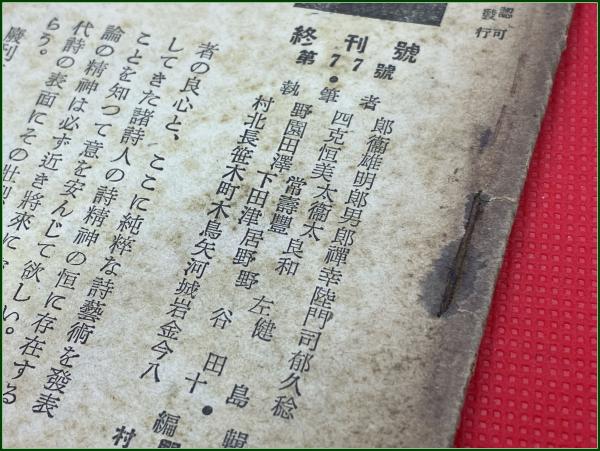 認可
發行
終刊號
第77號
執筆者
村野四郎
北園克衞
長田恒雄
笹澤美明
木下常太郎
町田壽衞男
木津豐太郎
鳥居良禪
矢野和幸
河野陸
城左門
岩谷健司
金田郁
今田久
八十島稔
編輯
村
者の良心と、ここに純粹な詩藝術を發表
してきた諸詩人の詩精神の恒に存在する
ことを知つて意を安んじて欲しい。
論の精神は必ず近き將來に
代詩の表面にその壯烈
らう。